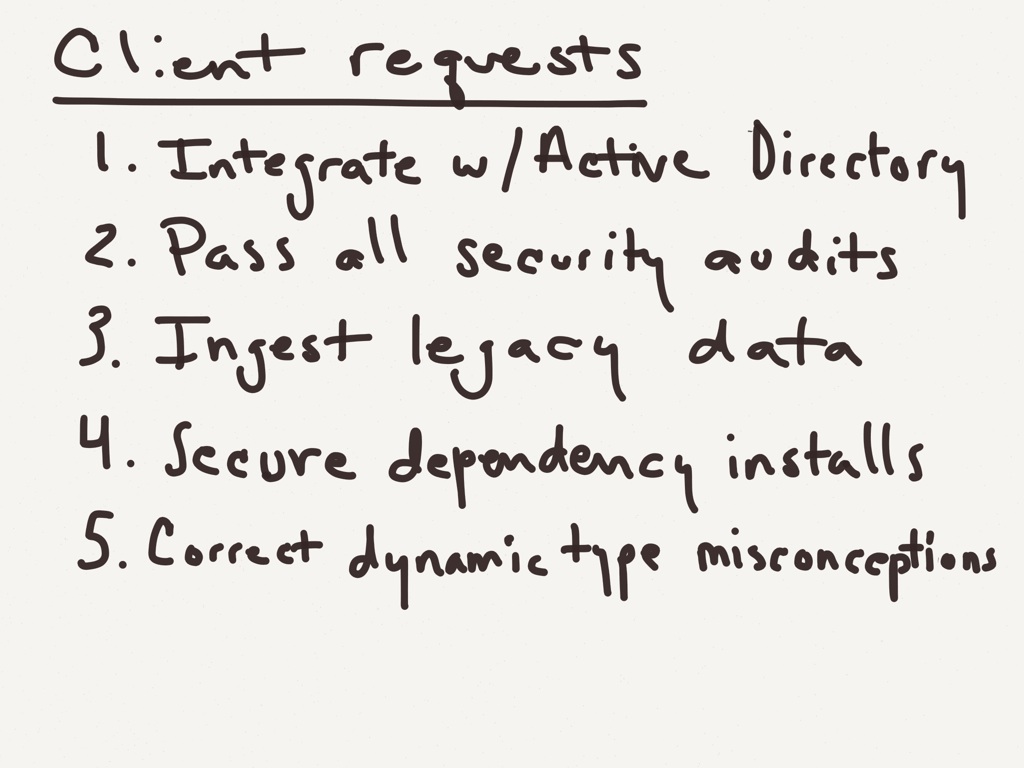 Client requests
1. Integrate w/Active Directory
2. Pass all security audits
3. Ingest legacy data
4. Secure dependency installs
5. Correct dynamic type misconceptions